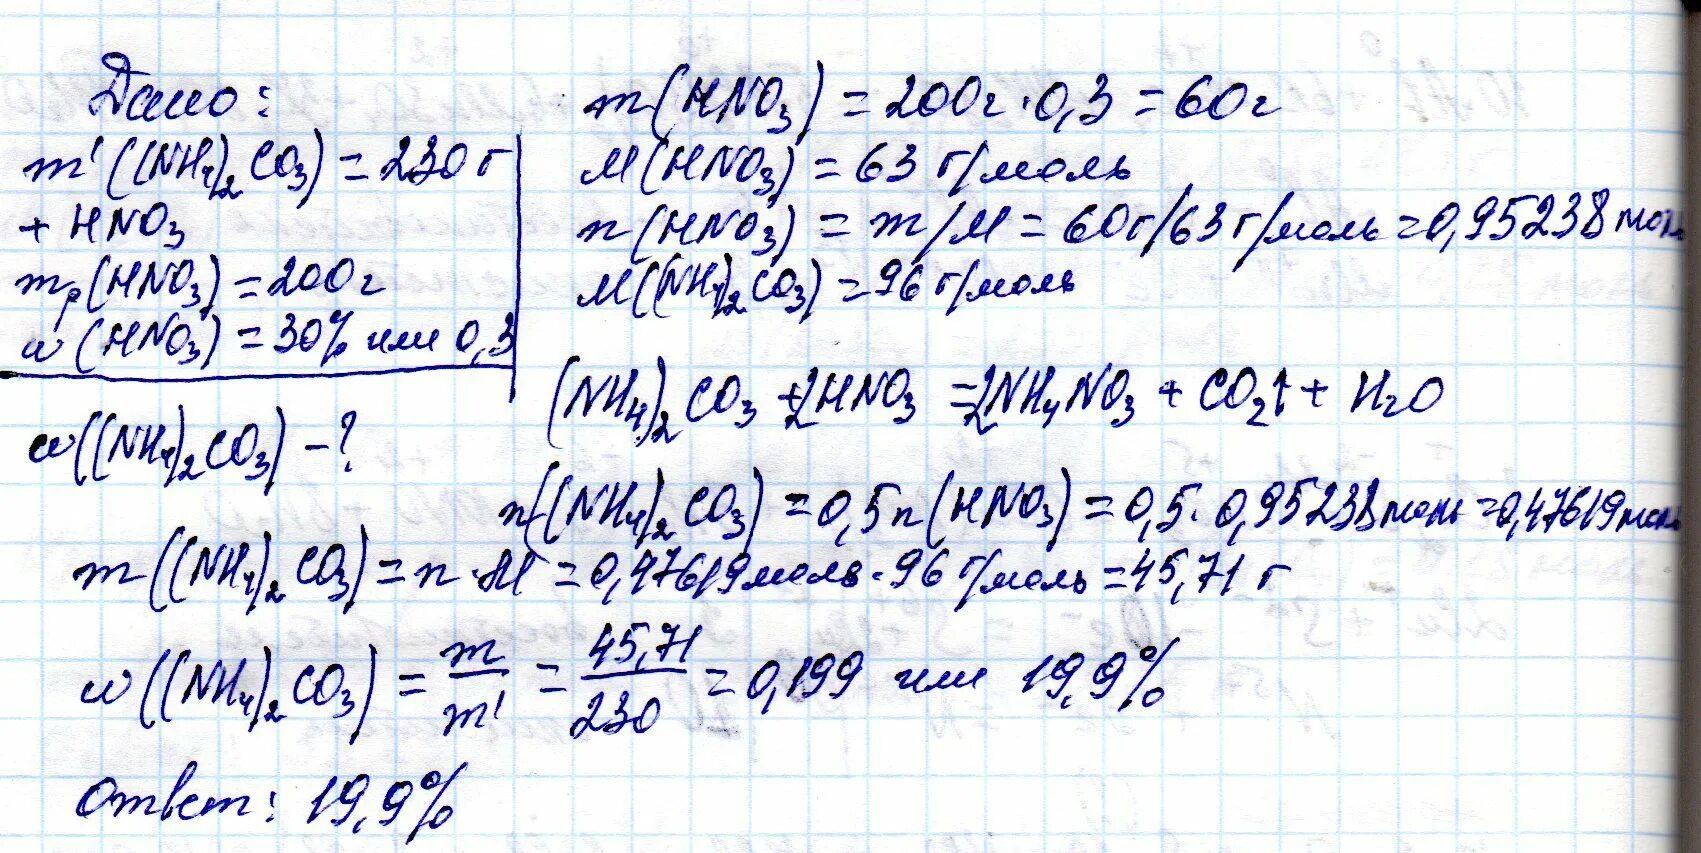 Дано:
m'((NH₄)₂CO₃) = 230 г
+ HNO₃
mр(HNO₃) = 200 г
w(HNO₃) = 30% или 0,3
w((NH₄)₂CO₃) - ?
m(HNO₃) = 200г · 0,3 = 60 г
M(HNO₃) = 63 г/моль
n(HNO₃) = m/M = 60г/63 г/моль = 0,95238 моль
M((NH₄)₂CO₃) = 96 г/моль
(NH₄)₂CO₃ + 2HNO₃ = 2NH₄NO₃ + CO₂↑ + H₂O
n((NH₄)₂CO₃) = 0,5n(HNO₃) = 0,5 · 0,95238 моль = 0,47619 моль
m((NH₄)₂CO₃) = n · M = 0,47619 моль · 96 г/моль = 45,71 г
w((NH₄)₂CO₃) = m/m' = 45,71/230 = 0,199 или 19,9%
Ответ: 19,9%